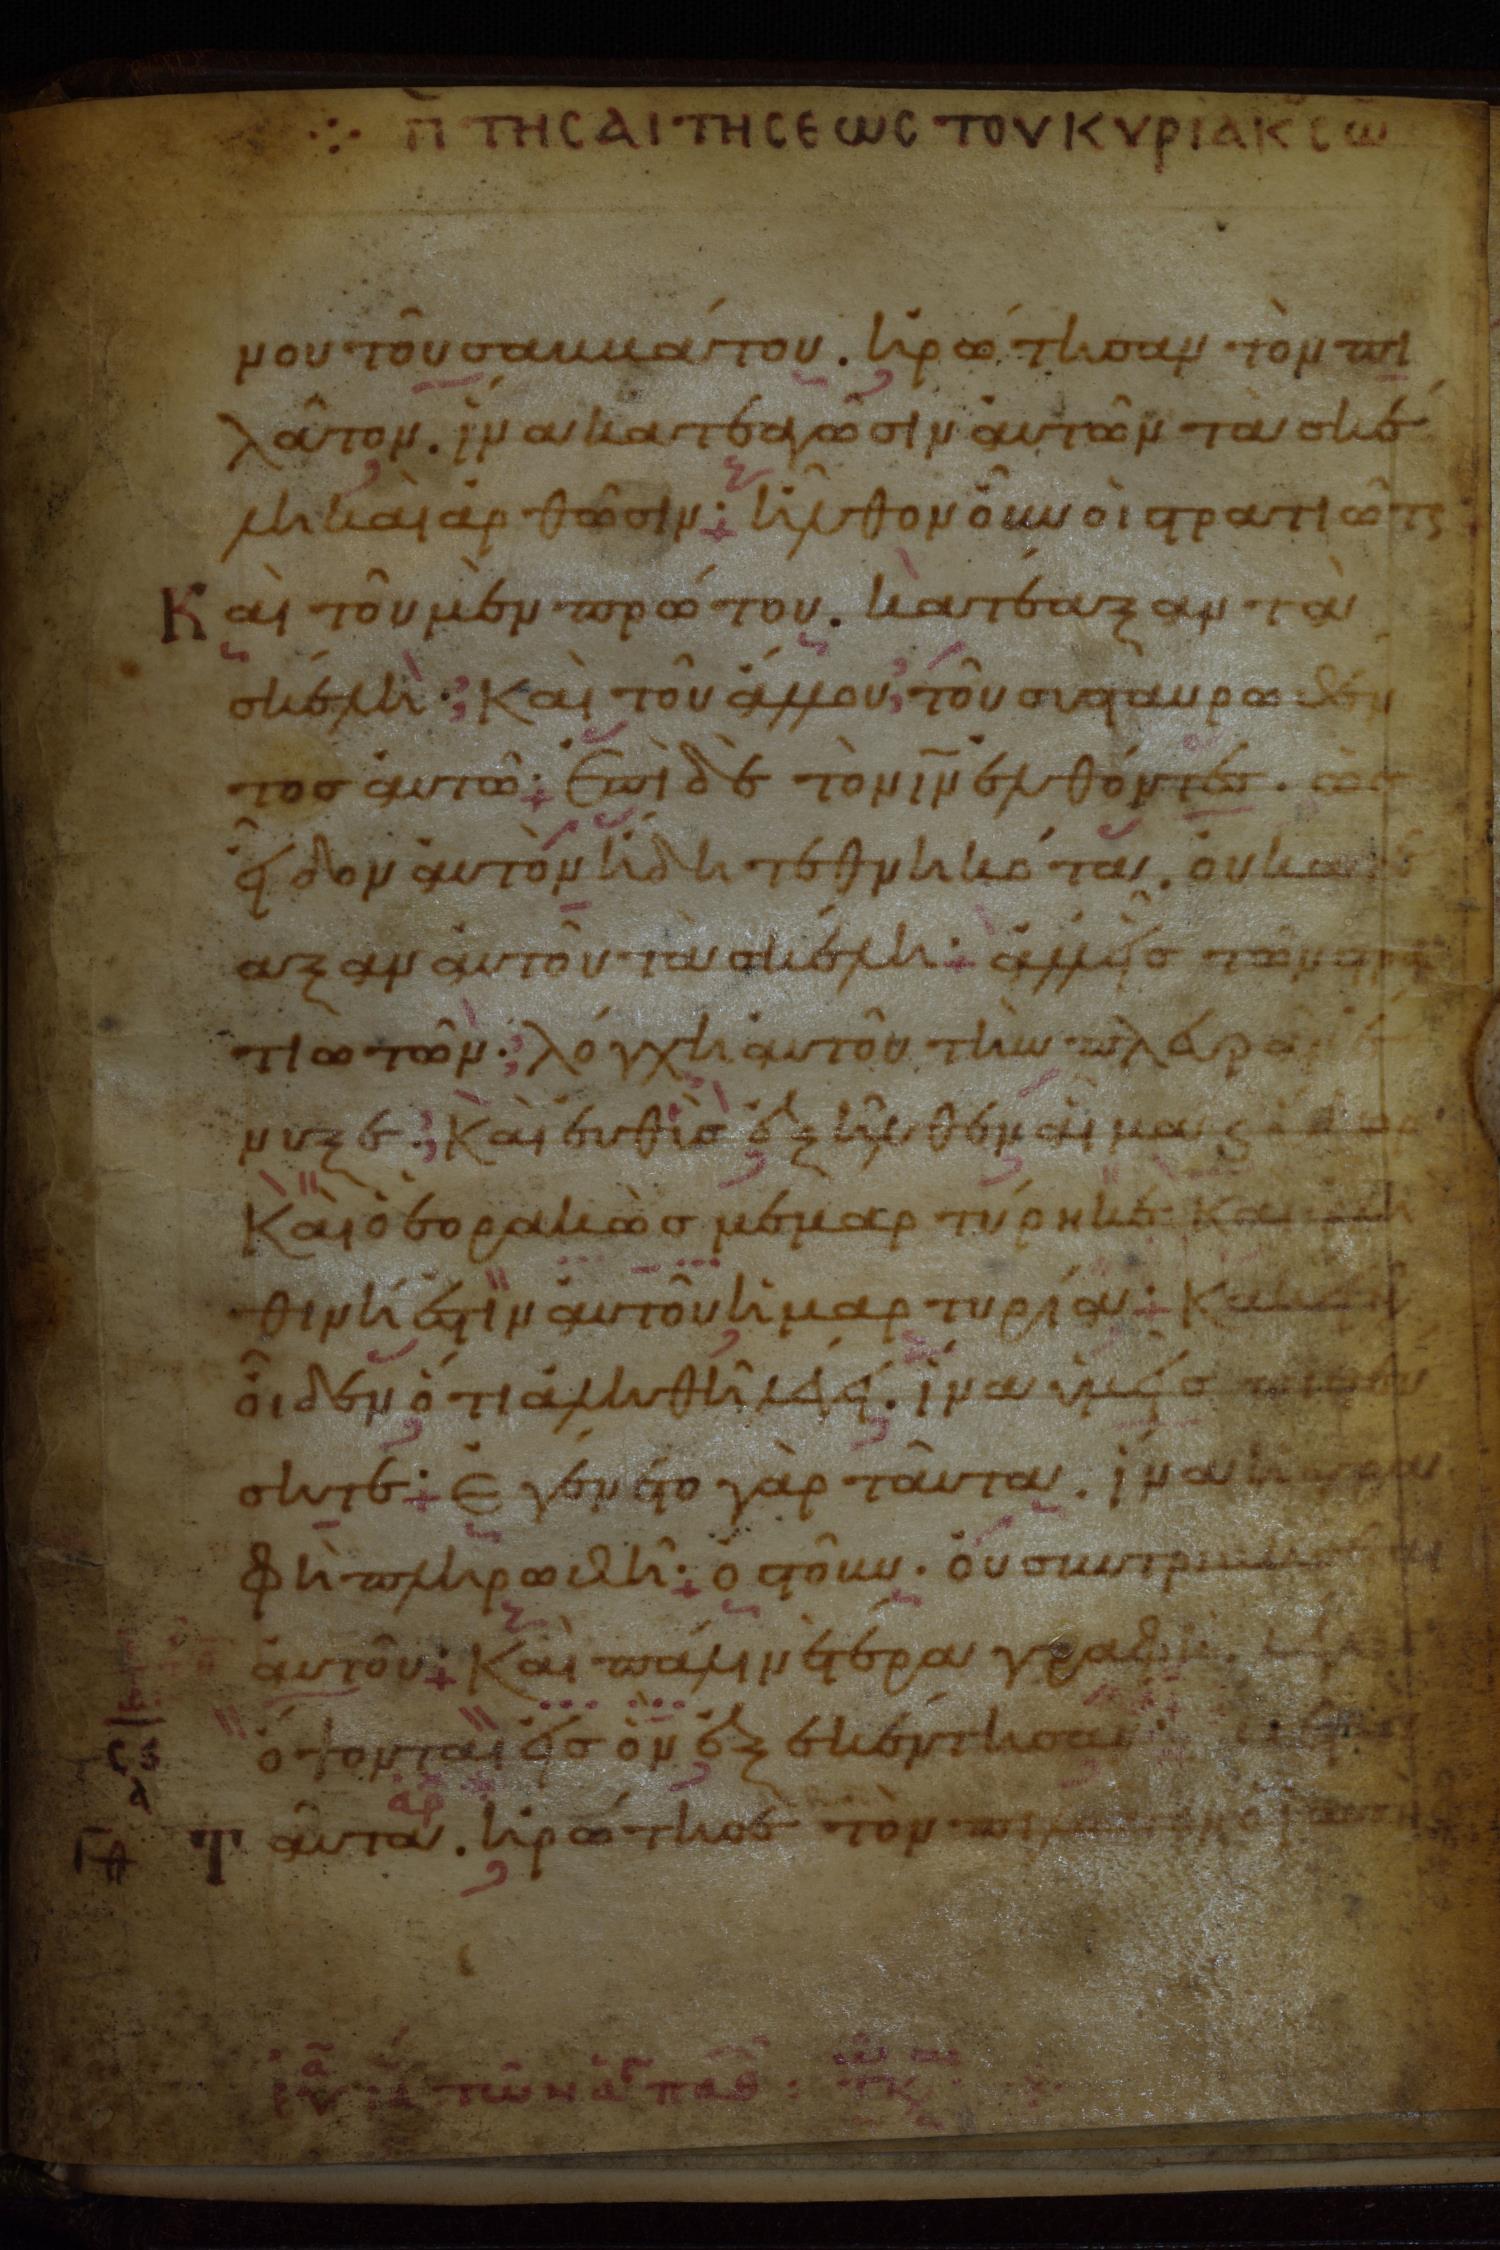 π τῆς αἰτήσεως του κυριακ σω
μου τοῦ σαββάτου. ἠρώτησαν τὸν πι
λᾶτον. ἵνα κατεαγῶσιν αὐτῶν τὰ σκέ
λη καὶ ἀρθῶσιν· ἦλθον οὖν οἱ στρατιῶτ
Καὶ τοῦ μὲν πρώτου. κατέαξαν τὰ
σκέλη· Καὶ τοῦ ἄλλου τοῦ συσταυρωθέν
τος αὐτῶ· Ἐπὶ δὲ τὸν ιν ἐλθόντες. ὡς
εἶδον αὐτὸν ἤδη τεθνηκότα. οὐ κατέ
αξαν αὐτοῦ τὰ σκέλη· ἀλλ' εἷς τῶν στρα
τιωτῶν· λόγχη αὐτοῦ τὴν πλευρὰν ἔ
νυξε· Καὶ εὐθὺς ἐξῆλθεν αἷμα
Καὶ ὁ ἑορακὼς μεμαρτύρηκε Καὶ ἀλη
θινή ἐστιν αὐτοῦ ἡ μαρτυρία·
οἶδεν ὅτι ἀληθῆ λέγει. ἵνα ὑμεῖς πιστεύ
σητε· Ἐγένετο γὰρ ταῦτα. ἵνα ἡ γρα
φὴ πληρωθῆ· ὀστοῦν. οὐ συντριβήσεται
αὐτοῦ· Καὶ πάλιν ἑτέρα γραφὴ. λέγει
ὄψονται εἰς ὃν ἐξεκέντησαν·
Ταῦτα. ἠρώτησε τὸν πιλᾶτον ὁ